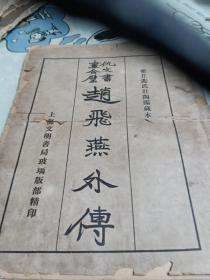 董丘裴氏壮陶阁藏本
仇文書畫合璧
趙飛燕外傳
上海文明書局玻璃版部精印